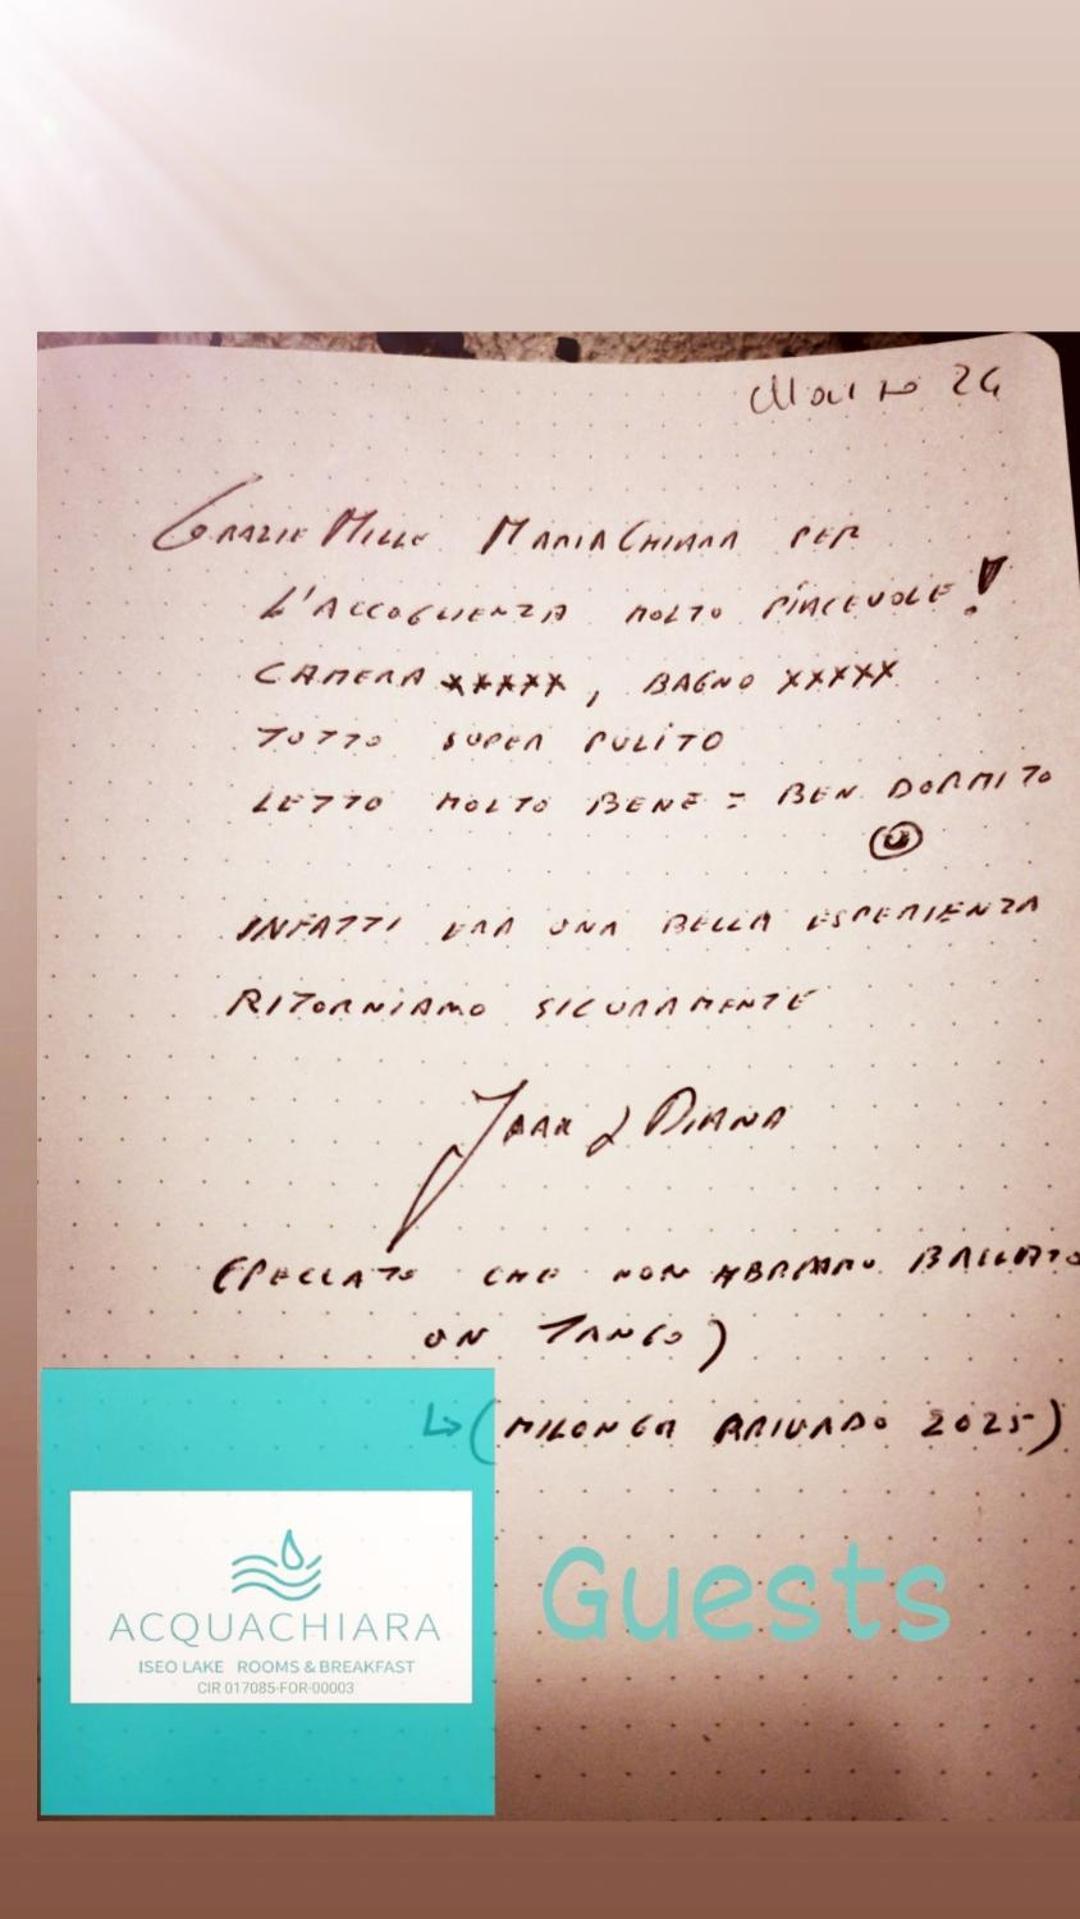 Marzo 24
GRAZIE MILLE MARIACHIARA PER
L'ACCOGLIENZA MOLTO PIACEVOLE!
CAMERA xxxxx, BAGNO xxxxx
TUTTO SUPER PULITO
LETTO MOLTO BENE = BEN DORMITO
INFATTI ERA UNA BELLA ESPERIENZA
RITORNIAMO SICURAMENTE
& DIANA
(PECCATO CHE NON ABBIAMO BALLATO
UN TANGO)
↳ (MILONGA PRIVADO 2025)
ACQUACHIARA
ISEO LAKE ROOMS & BREAKFAST
CIR 017085-FOR-00003
Guests